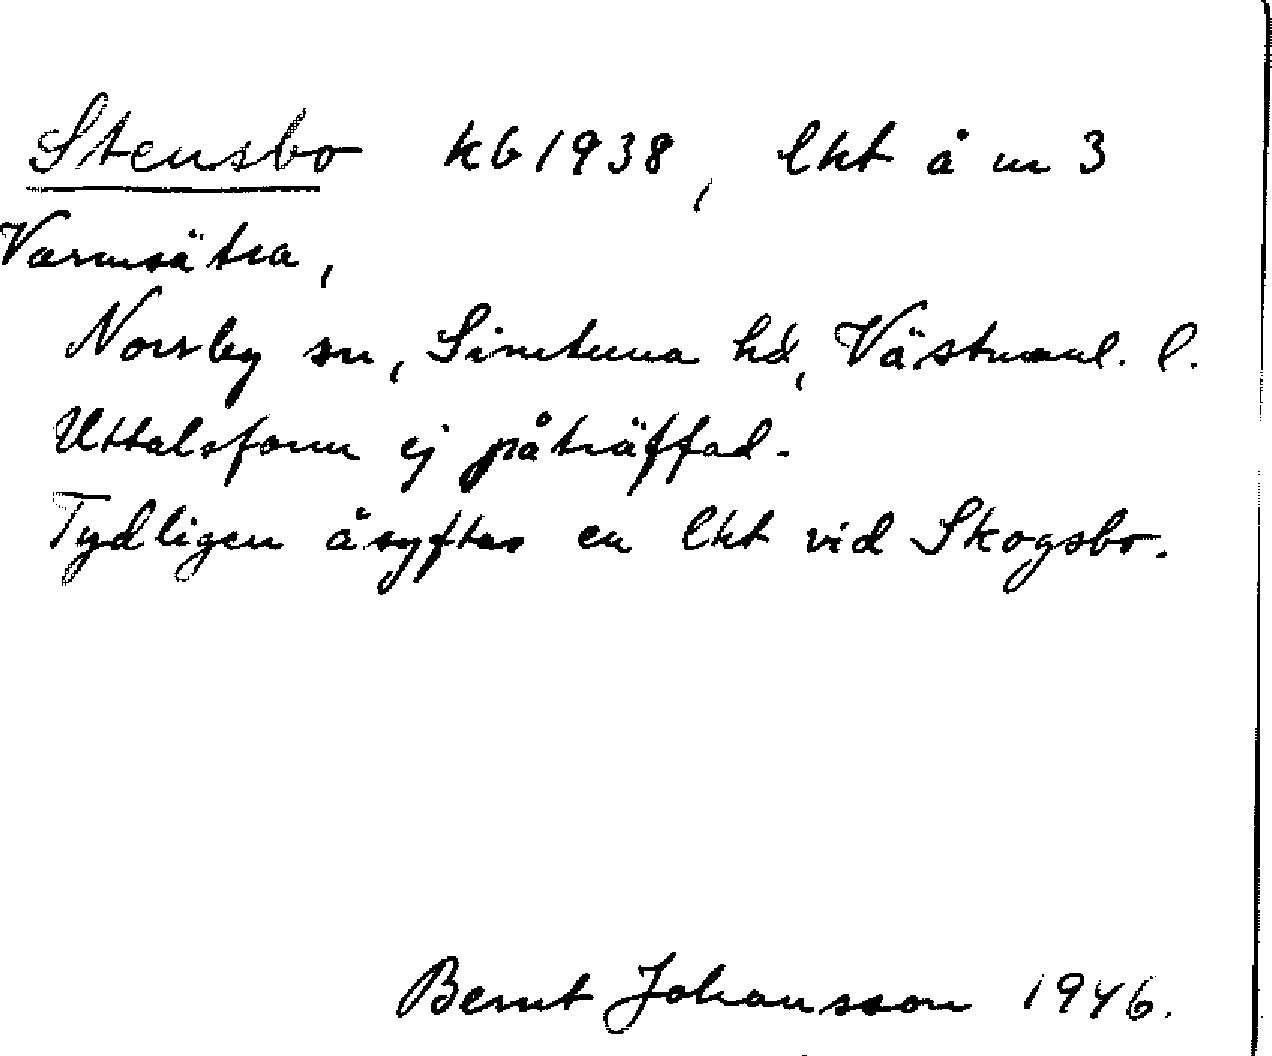 Stensbo kb 1938, lht å m 3
Varmsätra,
Norrby sn, Simtuna hd, Västmanl. l.
Uttalsform ej påträffad.
Tydligen åsyftas en lht vid Skogsbo.
Bernt Johansson 1946.